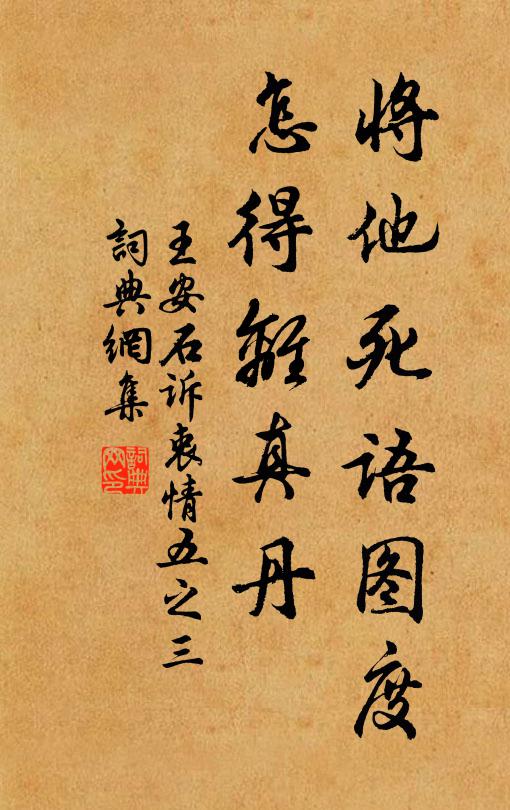 將他死语图度
怎得離真丹
王安石诉衷情五之三
詞典網集
詞典
网印